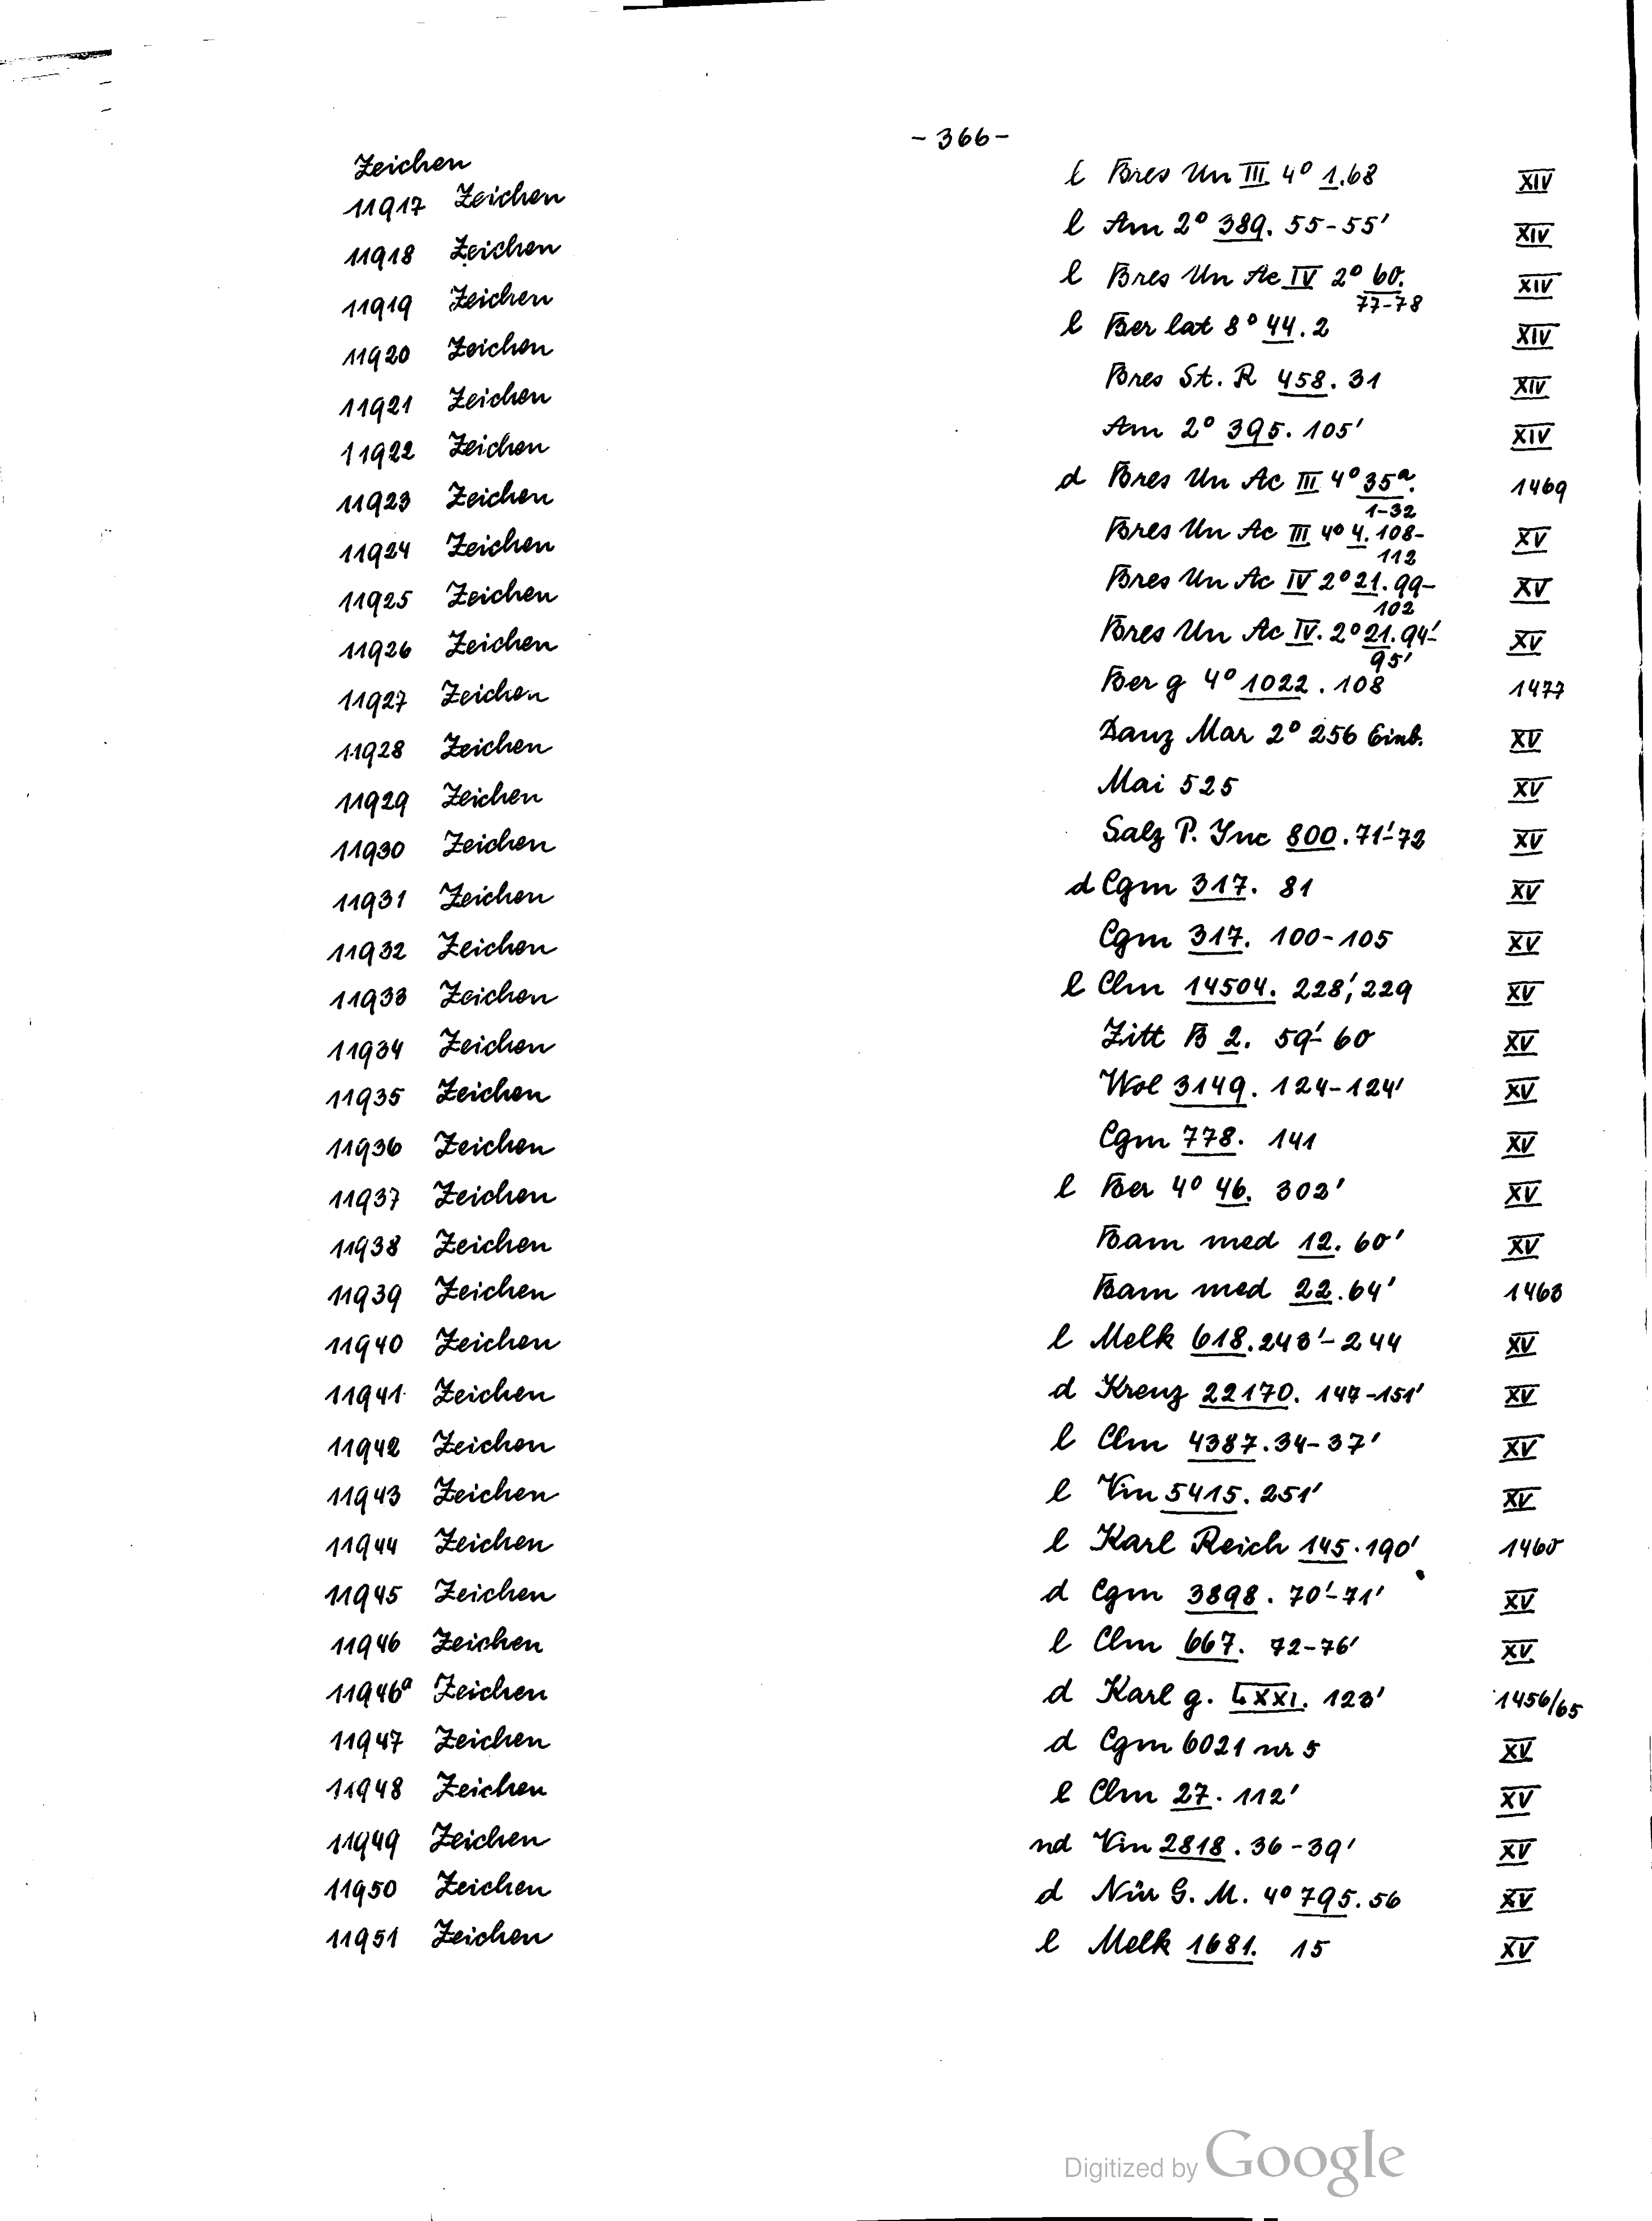 - 366 -
Zeichen
11917 Zeichen l Bres Un III 4° 1.68 XIV
11918 Zeichen l Am 2° 389. 55-55' XIV
11919 Zeichen l Bres Un Ac IV 2° 60. 77-78 XIV
11920 Zeichen l Ber lat 8° 44.2 XIV
11921 Zeichen Bres St. R 458. 31 XIV
11922 Zeichen Am 2° 395. 105' XIV
11923 Zeichen d Bres Un Ac III 4° 35a. 1-32 1469
11924 Zeichen Bres Un Ac III 4° 4. 108-112 XV
11925 Zeichen Bres Un Ac IV 2° 21. 99-102 XV
11926 Zeichen Bres Un Ac IV. 2° 21. 94'-95' XV
11927 Zeichen Ber g 4° 1022. 108 1477
11928 Zeichen Danz Mar 2° 256 Einb. XV
11929 Zeichen Mai 525 XV
11930 Zeichen Salz P. Inc 800. 71'-72 XV
11931 Zeichen d Cgm 317. 81 XV
11932 Zeichen Cgm 317. 100-105 XV
11933 Zeichen l Clm 14504. 228', 229 XV
11934 Zeichen Zitt B 2. 59'-60 XV
11935 Zeichen Wol 3149. 124-124' XV
11936 Zeichen Cgm 778. 141 XV
11937 Zeichen l Ber 4° 46. 302' XV
11938 Zeichen Bam med 12. 60' XV
11939 Zeichen Bam med 22. 64' 1463
11940 Zeichen l Melk 618. 243'-244 XV
11941 Zeichen d Krenz 22170. 147-151' XV
11942 Zeichen l Clm 4387. 34-37' XV
11943 Zeichen l Vin 5415. 251' XV
11944 Zeichen l Karl Reich 145. 190' 1460
11945 Zeichen d Cgm 3898. 70'-71' XV
11946 Zeichen l Clm 667. 72-76' XV
11946a Zeichen d Karl g. LXXI. 123' 1456/65
11947 Zeichen d Cgm 6021 nr 5 XV
11948 Zeichen l Clm 27. 112' XV
11949 Zeichen nd Vin 2818. 36-39' XV
11950 Zeichen d Nür G. M. 4° 795. 56 XV
11951 Zeichen l Melk 1681. 15 XV
Digitized by Google